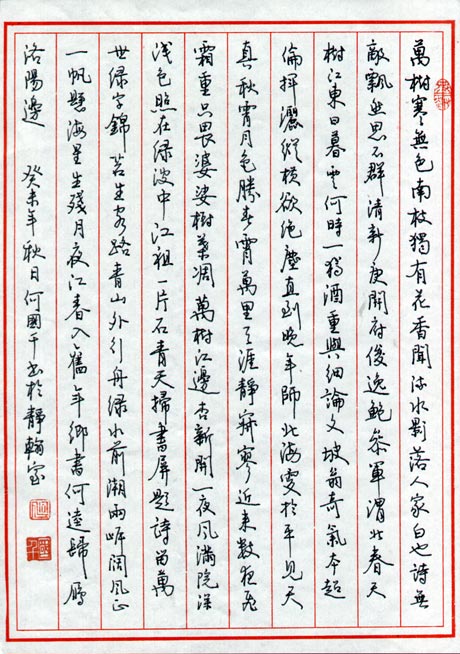 萬樹寒無色南枝獨有花香聞流水影落人家白也詩無
敵飄然思不群清新庾開府俊逸鮑參軍渭北春天
樹江東日暮雲何時一樽酒重與細論文坡翁奇氣本超
倫揮灑縱橫欲絕塵直到晚年師北海更於平見天
真秋霄月色勝春霄萬里天涯靜寂寥近來數夜飛
霜重只畏婆娑樹葉凋萬樹江邊杏新開一夜風滿院深
淺色照在綠波中江祖一片石青天掃畫屏題詩留萬
世綠字錦苔生客路青山外行舟綠水前潮兩岸闊風正
一帆懸海星生殘月夜江春入舊年鄉書何達歸雁
洛陽邊 癸未年秋日何國千書於靜翰室